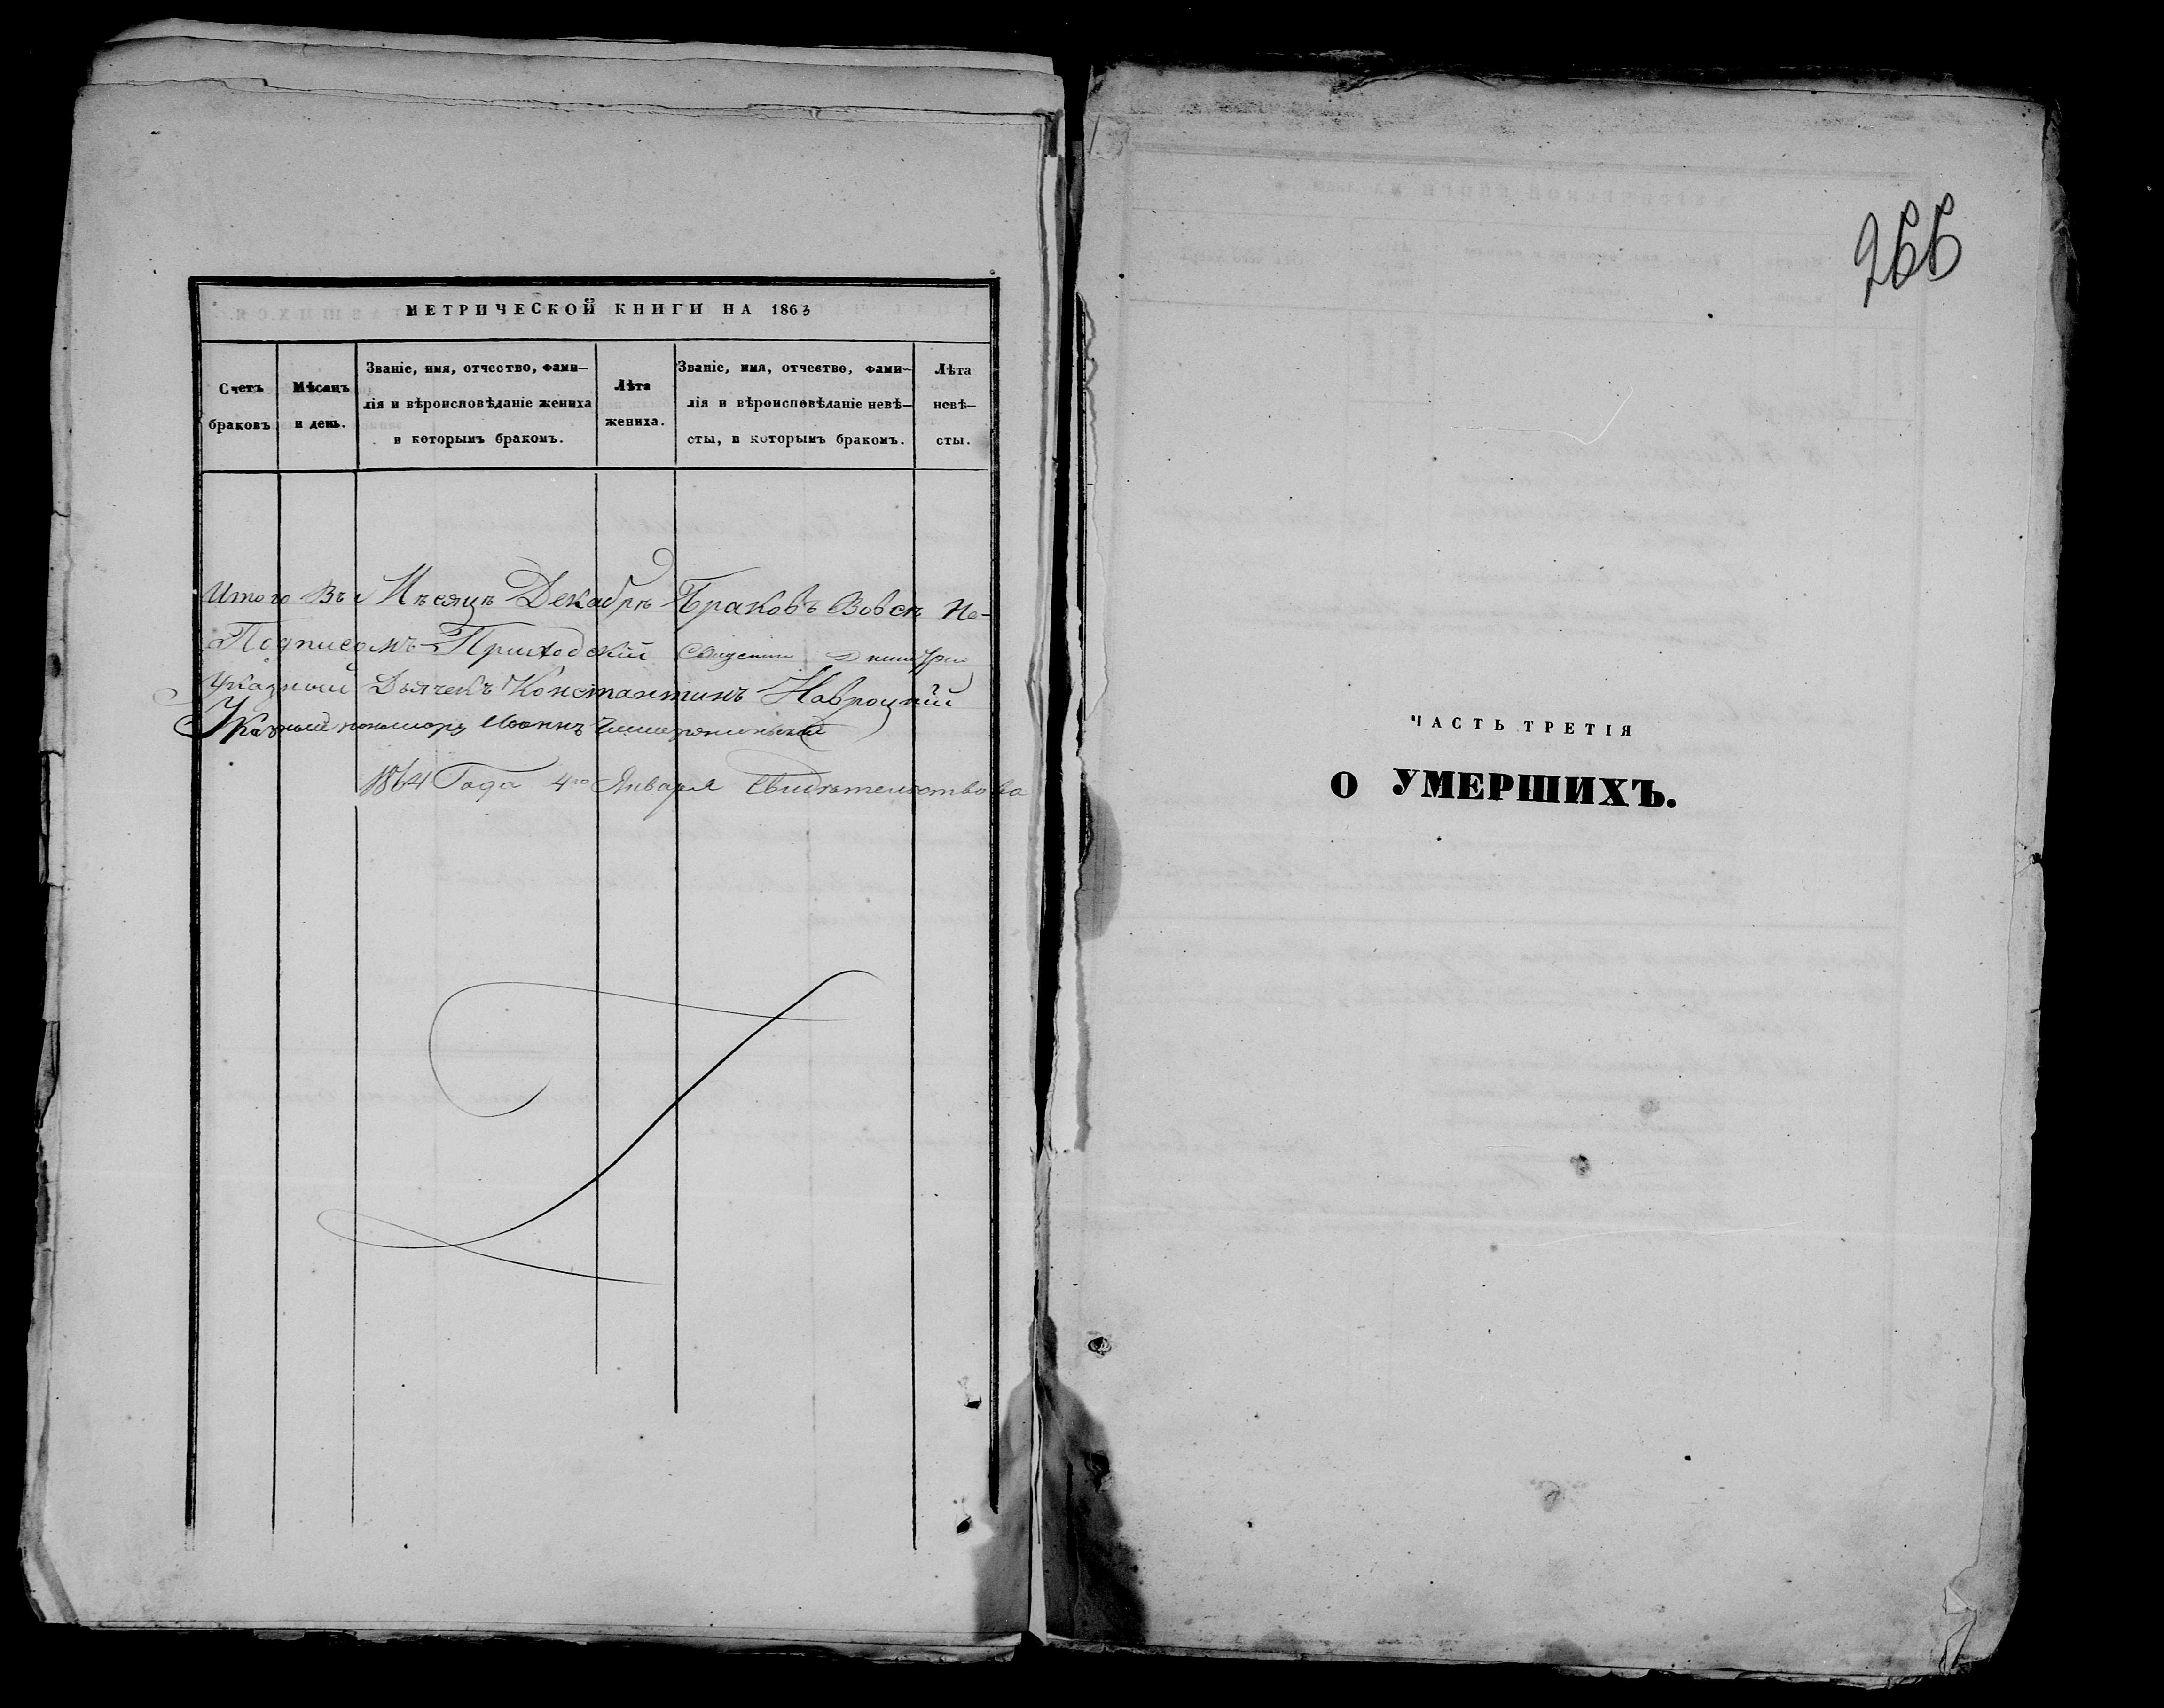 МЕТРИЧЕСКОЙ КНИГИ НА 1863
Счетъ
браковъ
Мѣсяцъ
и день.
Званіе, имя, отчество, фами–
лія и вѣроисповѣданіе жениха
и которымъ бракомъ.
Лѣта
жениха.
Званіе, имя, отчество, фами–
лія и вѣроисповѣданіе невѣ–
сты, и которымъ бракомъ.
Лѣта
невѣ–
сты.
Итого Въ Мѣсяцѣ Декабрѣ Браковъ Вовсѣ Не-
Приходскій Священникъ Димитрій
Указный Дьячекъ Константинъ Навроцкій
Указный пономарь Іоаннъ
1864 Года 4го Января Свидѣтельствова
266
ЧАСТЬ ТРЕТІЯ
О УМЕРШИХЪ.